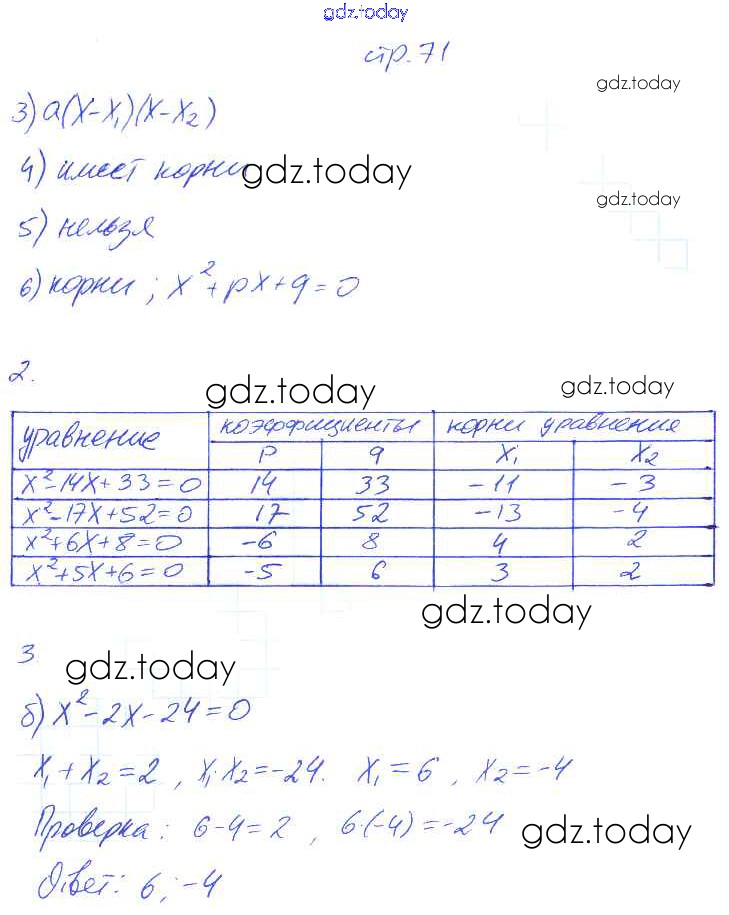 gdz.today
стр. 71
gdz.today
3) a(x-x₁)(x-x₂)
4) имеет корни gdz.today
gdz.today
5) нельзя
6) корни ; x²+px+q=0
2.
gdz.today gdz.today
уравнение коэффициенты корни уравнение
p q x₁ x₂
x²-14x+33=0 14 33 -11 -3
x²-17x+52=0 17 52 -13 -4
x²+6x+8=0 -6 8 4 2
x²+5x+6=0 -5 6 3 2
gdz.today
3.
gdz.today
б) x²-2x-24=0
x₁+x₂=2 , x₁·x₂=-24. x₁=6 , x₂=-4
Проверка: 6-4=2 , 6·(-4)=-24 gdz.today
Ответ: 6 ; -4